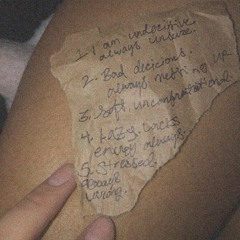 1. I am undecisive.
always unsure.
2. Bad decisions.
always messing up
3. Soft, unconfrontational
4. Lazy. lacks
energy always.
5. Stressed.
always